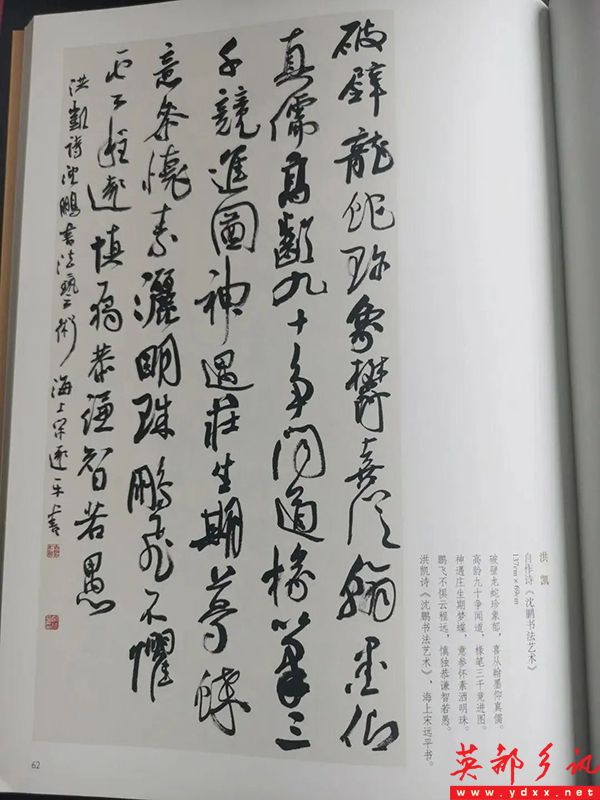 破壁龍蛇珍象鬱喜從翰墨仰
真儒高齡九十争聞道椽筆三
千競進圖神遇莊生期夢蝶
意參懷素灑明珠鵬飛不懼
雲程遠慎獨恭謙智若愚
洪凱詩沈鵬書法藝術 海上宋遠平書
洪 凯
自作诗《沈鹏书法艺术》
137cm×69cm
破壁龙蛇珍象郁，喜从翰墨仰真儒。
高龄九十争闻道，椽笔三千竞进图。
神遇庄生期梦蝶，意参怀素洒明珠。
鹏飞不惧云程远，慎独恭谦智若愚。
洪凯诗《沈鹏书法艺术》，海上宋远平书。
62
英都乡讯
www.ydxx.net